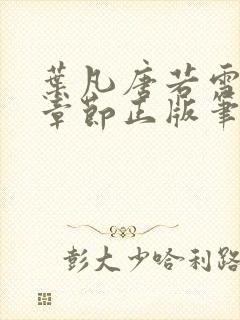 葉凡唐若雪
章節正版筆
彭大少哈利路